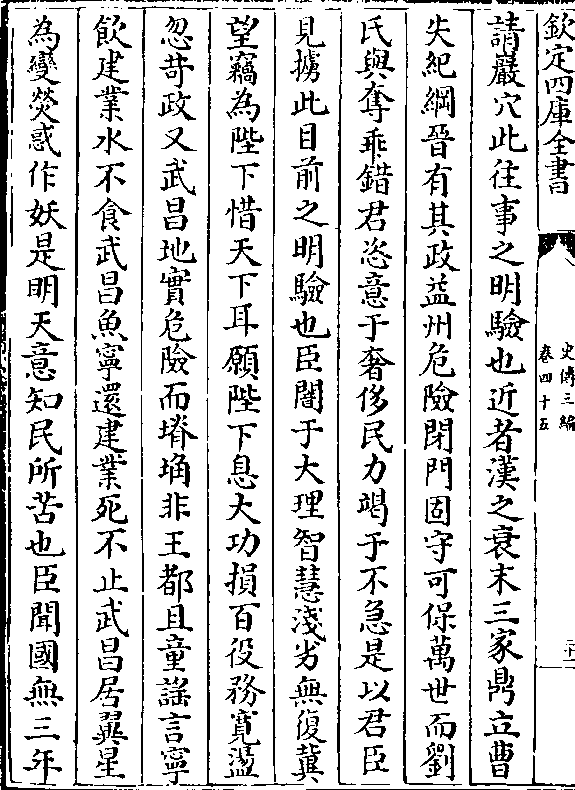 欽定四庫全書
史傳三編
卷四十五
請巖穴此往事之明驗也近者漢之衰末三家鼎立曹
失紀綱晉有其政益州危險閉門固守可保萬世而劉
氏與奪乖錯君恣意于奢侈民力竭于不急是以君臣
見擄此目前之明驗也臣闇于大理智慧淺劣無復冀
望竊為陛下惜天下耳願陛下息大功損百役務寛盪
忽苛政又武昌地實危險而塉埆非王都且童謡言寧
飲建業水不食武昌魚寧還建業死不止武昌居翼星
為變熒惑作妖是明天意知民所苦也臣聞國無三年